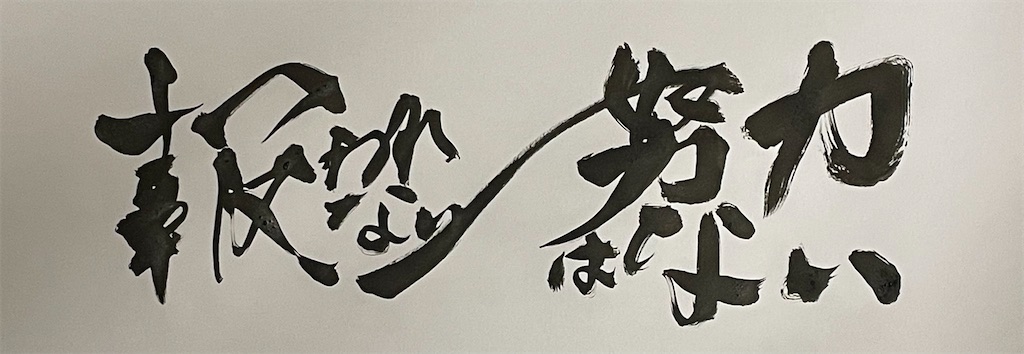 報われない努力はない